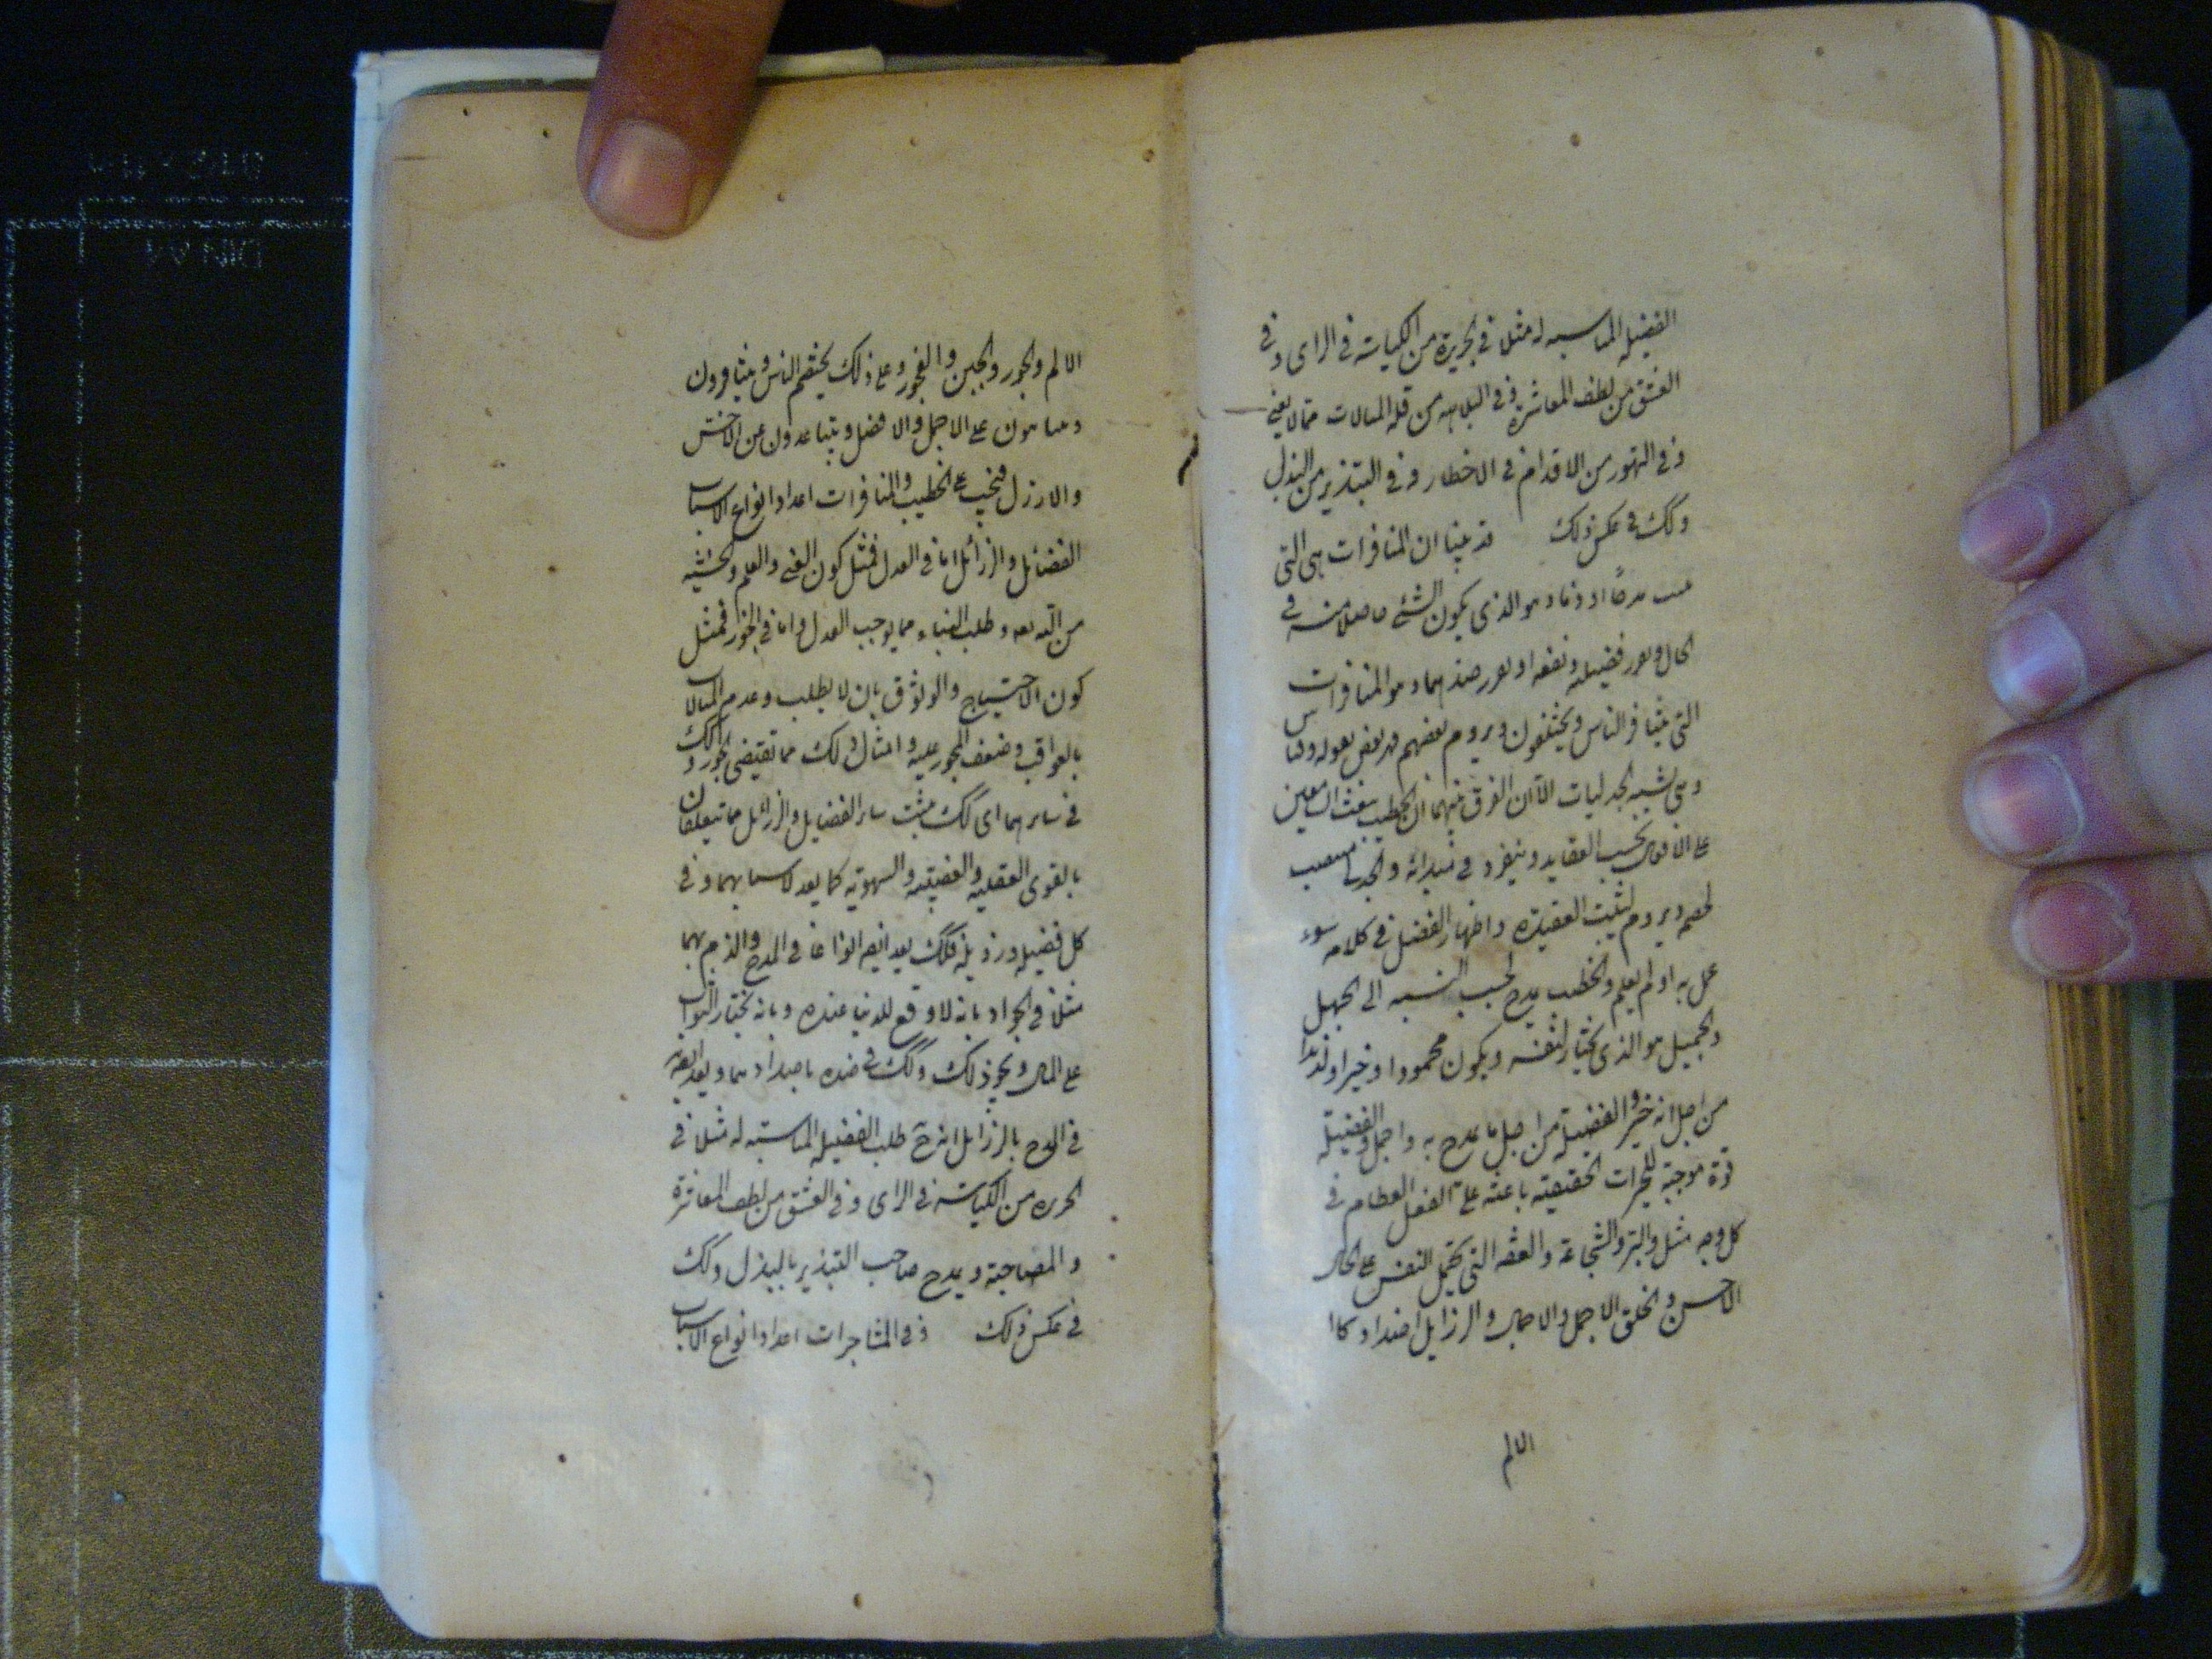 الفضيله المناسبه له مثل في الجربزة من الكياسة في الراى و في
العشق من لطف المعاشرة و في البلاهه من قلة المبالات ممّا لا يعنى
و في التهور من الاقدام في الاخطار و في التبذير من البذل
و لك في عكس ذلك قد بينا ان المنافرات هى التى
مدحًا او ذما و هو الذى يكون الشئ حاصلا منه في
الحال و فضيله و نفعه او ضد هما و هو المنافرات
التى يتنافر الناس و يختلفون و يروم بعضهم
و هى شبيه الجدليات الا ان الفرق بينهما ان الخطيب
على الاقوى بحسب العقايد و ينفرد في ميدانه و الجدلى
لخصم و يروم لتثبت العقيدة و اظهار الفضل في كلامه سوء
عمل به او لم يعلم و الخطيب يمدح بحسب النسبه الى الجهل
و الجميل هو الذى يختار لنفسه و يكون محمودا و خيرا و لذيذا
من اجل انه خير و الفضيلة من اجل ما يمدح به و اجمل و الفضيلة
قوة موجبة للخيرات الحقيقية باعثه على الفعل العظام في
كل وجه مثل و البر و الشجاعة و العفه التى تحمل النفس على الحال
الاحسن و الخلق الاجمل و الاحمال و الرزايل اضداد كا
الالم
الالم و الجور و الجبن و الفجور و على ذلك يختصم الناس و يتنافرون
على الاجمل و الافضل و يتباعدون عن الاخس
و الارزل فيجب على الخطيب و المنافرات اعداد انواع الاسباب
الفضائل و الرزائل اما في العدل فمثل كون الغنى و العلم و الخشيه
من و طلب مما يوجب العدل و اما في الجور فمثل
كون الاحتياج و الوثوق بان لا يطلب و عدم المبالات
بالعواقب و ضعف المجور عليه و امثال ذلك مما تقتضى الجور و كك
في ساير هما اى كك يثبت ساير الفضايل و الرزائل مما يتعلقان
بالقوى العقليه و الغضبيه و الشهوتيه كما يعد لاسبابهما و في
كل فضيله و رذيلة فكك يعد ايضا انواعا في المدح و الذم بهما
مثلا في الجواد بانه لا وقع للدنيا عنده و بانه يختار الثواب
على المال و نحو ذلك و كك في ضده باضدادهما و يعد ايضا
في المدح بالرزايل انه طلب الفضيله المناسبة له مثلا في
من الكياسة في الراى و في العشق من لطف المعاشرة
و المصاحبة و يمدح صاحب التبذير بالبذل و لك
في عكس ذلك و في المشاجرات اعداد انواع الاسباب